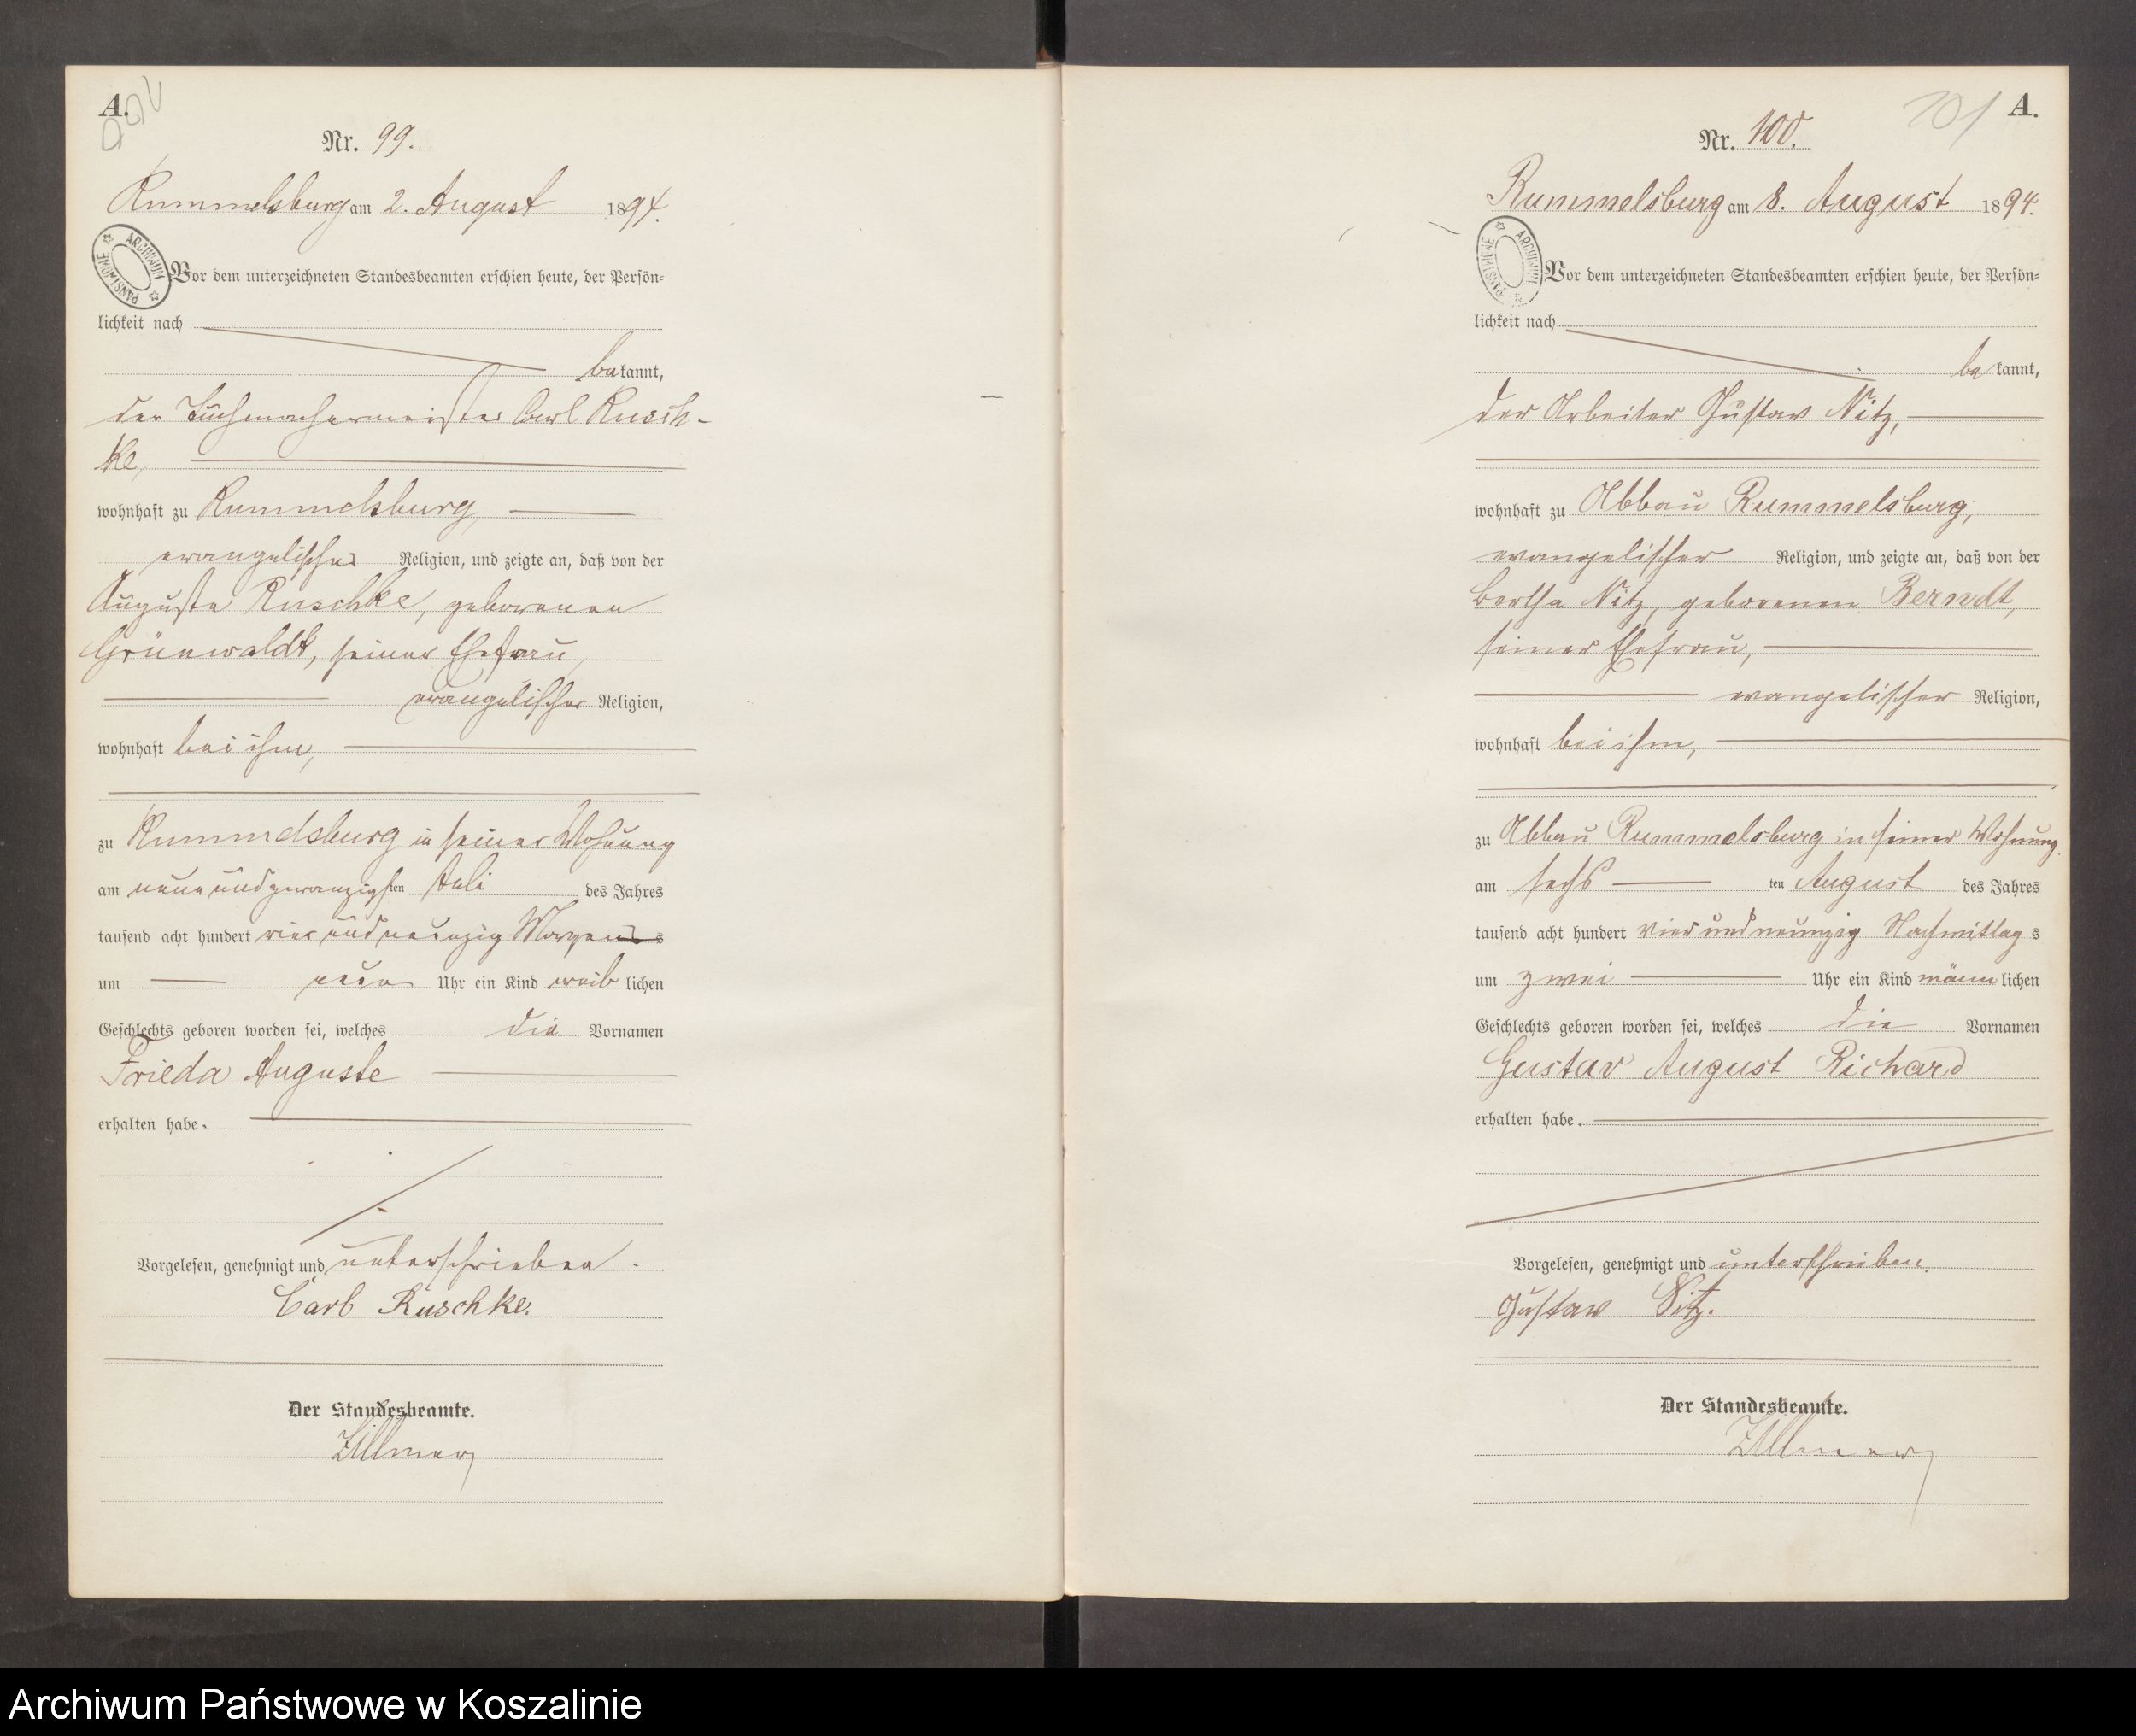 A.
Nr. 99.
Rummelsburg am 2. August 1894.
ARCHIWUM PAŃSTWOWE
Vor dem unterzeichneten Standesbeamten erschien heute, der Persön-
lichkeit nach
bekannt,
der Tuchmachermeister Carl Rusch-
ke,
wohnhaft zu Rummelsburg,
evangelischer Religion, und zeigte an, daß von der
Auguste Ruschke, geborenen
Grünwaldt, seiner Ehefrau,
evangelischer Religion,
wohnhaft bei ihm,
zu Rummelsburg in seiner Wohnung
am neunundzwanzigsten Juli des Jahres
tausend acht hundert vier und neunzig Morgens
um neun Uhr ein Kind weiblichen
Geschlechts geboren worden sei, welches die Vornamen
Frieda Auguste
erhalten habe.
Vorgelesen, genehmigt und unterschrieben.
Carl Ruschke.
Der Standesbeamte.
Zillmer
101 A.
Nr. 100.
Rummelsburg am 8. August 1894.
ARCHIWUM PAŃSTWOWE
Vor dem unterzeichneten Standesbeamten erschien heute, der Persön-
lichkeit nach
bekannt,
der Arbeiter Gustav Nitz,
wohnhaft zu Abbau Rummelsburg,
evangelischer Religion, und zeigte an, daß von der
Bertha Nitz, geborenen Berndt,
seiner Ehefrau,
evangelischer Religion,
wohnhaft bei ihm,
zu Abbau Rummelsburg in seiner Wohnung
am sechsten August des Jahres
tausend acht hundert vier und neunzig Nachmittags
um zwei Uhr ein Kind männlichen
Geschlechts geboren worden sei, welches die Vornamen
Gustav August Richard
erhalten habe.
Vorgelesen, genehmigt und unterschrieben.
Gustav Nitz.
Der Standesbeamte.
Zillmer
Archiwum Państwowe w Koszalinie